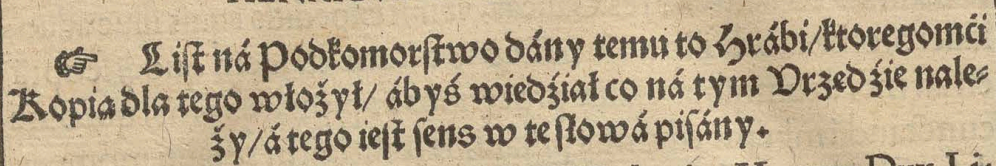 ☞ Liſt ná Podkomorſtwo dány temu to Hrábi/ktoregomći
Kopia dla tego włożył/ ábyś wiedźiał co ná tym Vrzędźie nale⸗
ży/á tego ieſt ſens w te ſłowá piſány.